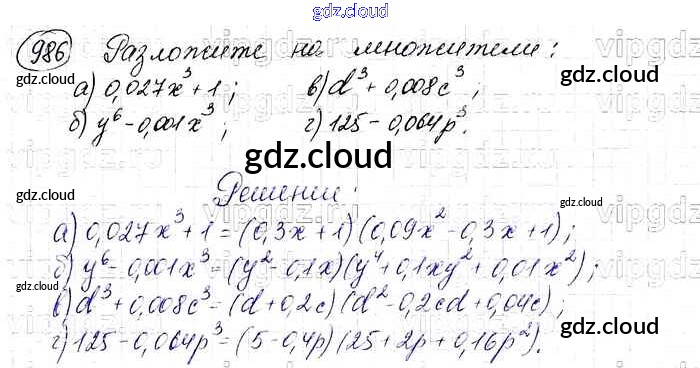 gdz.cloud
986 Разложите на множители:
а) 0,027x³+1; в) d³+0,008c³;
б) y⁶-0,001x³; г) 125-0,064p³.
gdz.cloud
Решении:
а) 0,027x³+1=(0,3x+1)(0,09x²-0,3x+1);
б) y⁶-0,001x³=(y²-0,1x)(y⁴+0,1xy²+0,01x²);
в) d³+0,008c³=(d+0,2c)(d²-0,2cd+0,04c);
г) 125-0,064p³=(5-0,4p)(25+2p+0,16p²).